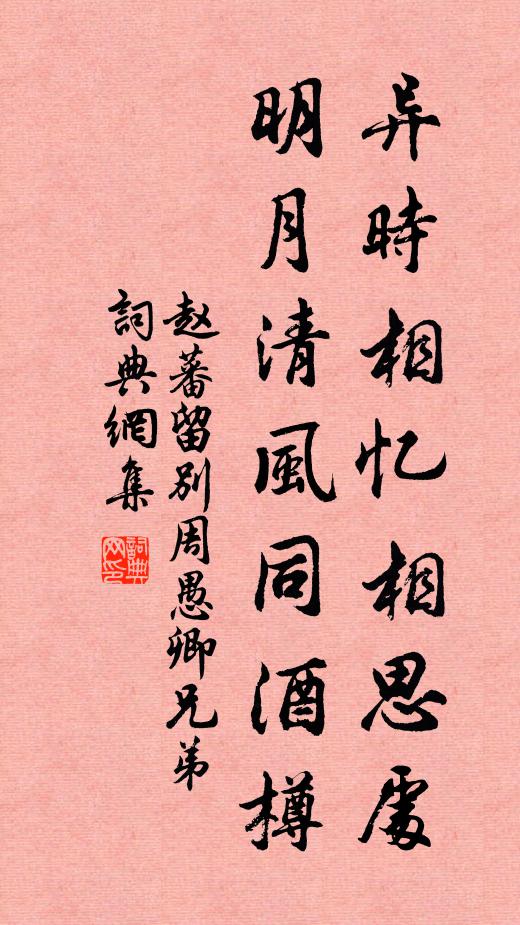 异時相忆相思處
明月清風同酒樽
赵蕃留别周愚卿兄弟
詞典網集
詞典網印